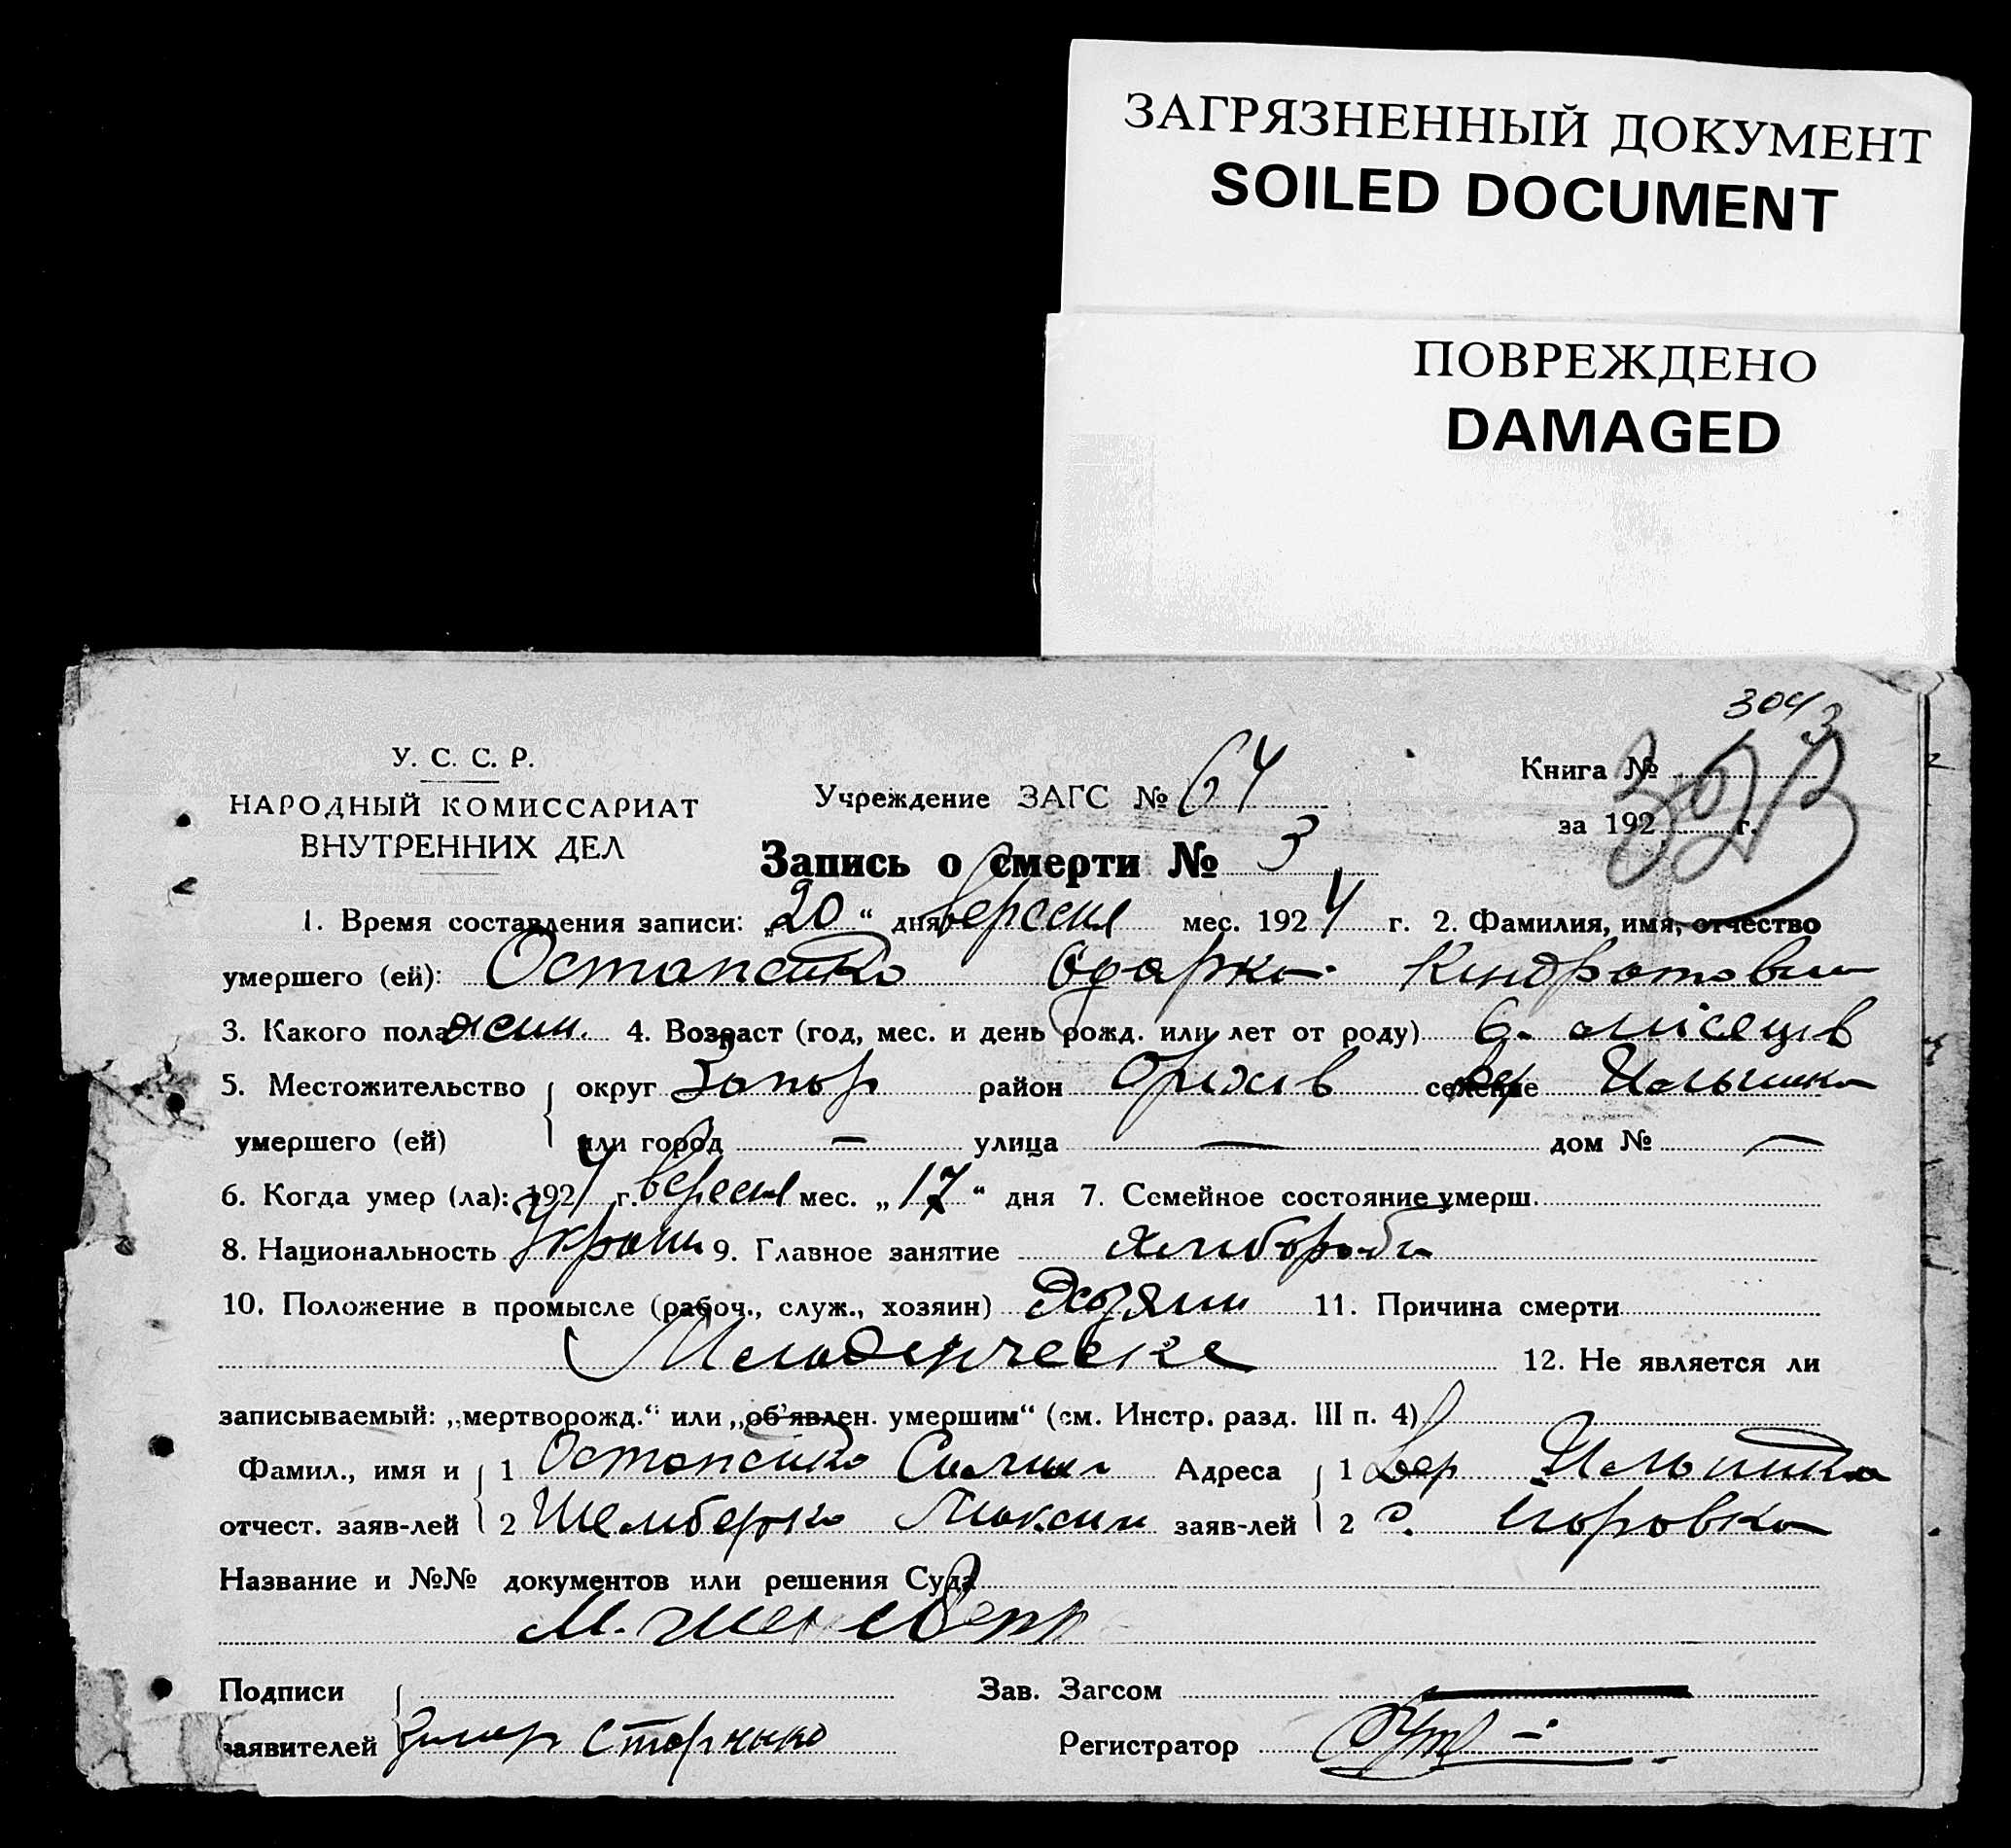 ЗАГРЯЗНЕННЫЙ ДОКУМЕНТ
SOILED DOCUMENT
ПОВРЕЖДЕНО
DAMAGED
3043
У. С. С. Р.
НАРОДНЫЙ КОМИССАРИАТ
ВНУТРЕННИХ ДЕЛ
Учреждение ЗАГС № 64
Книга №
за 192 г.
Запись о смерти № 3
1. Время составления записи: „20“ дня вересня мес. 1924 г. 2. Фамилия, имя, отчество
умершего (ей): Остапенко Одарка Кіндратовна
3. Какого пола жин. 4. Возраст (год, мес. и день рожд. или лет от роду) 6. місяців
5. Местожительство округ Запор район Оріхів селение
умершего (ей) или город — улица — дом № —
6. Когда умер (ла): 1924 г. вересня мес. „17“ дня 7. Семейное состояние умерш.
8. Национальность Україн 9. Главное занятие хлибороб
10. Положение в промысле (рабоч., служ., хозяин) Хозяин 11. Причина смерти
Младенческе 12. Не является ли
записываемый: „мертворожд.“ или „об'явлен. умершим“ (см. Инстр. разд. III п. 4)
Фамил., имя и 1 Остапенко Адреса 1
отчест. заяв-лей 2 Шемберко Максим заяв-лей 2 с. Егоровка
Название и №№ документов или решения Суда
М.
Подписи Зав. Загсом
заявителей Регистратор